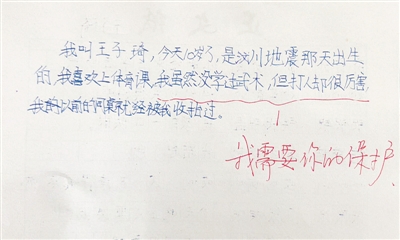 我叫王子琦，今天10岁了，是汶川地震那天出生
的，我喜欢上体育课，我虽然没学过武术，但打人却很厉害，
我以前的同桌就经被我收拾过。
我需要你的保护